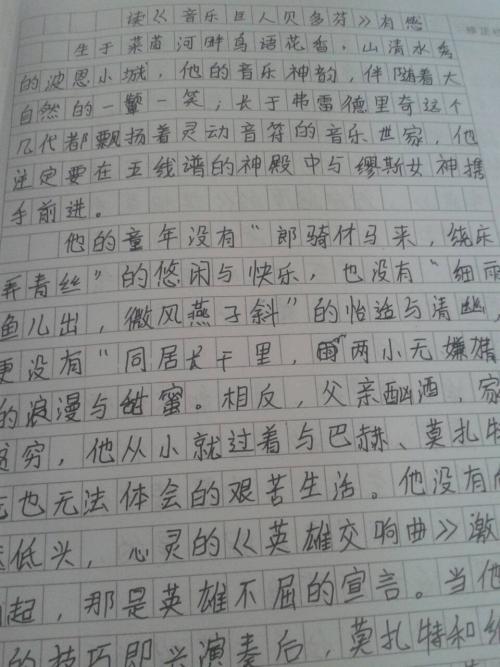 读《音乐巨人贝多芬》有感
生于莱茵河畔鸟语花香、山清水秀
的波恩小城，他的音乐神韵，伴随着大
自然的一颦一笑；长于弗雷德里奇这个
几代都飘扬着灵动音符的音乐世家，他
注定要在五线谱的神殿中与缪斯女神携
手前进。
他的童年没有“郎骑竹马来，绕床
弄青丝”的悠闲与快乐，也没有“细雨
鱼儿出，微风燕子斜”的怡适与清幽，
更没有“同居长干里，两小无嫌猜
的浪漫与甜蜜。相反，父亲酗酒，家
贫穷，他从小就过着与巴赫、莫扎特
也无法体会的艰苦生活。他没有
低头，心灵的《英雄交响曲》激
起，那是英雄不屈的宣言。当他
的技巧即兴演奏后，莫扎特和